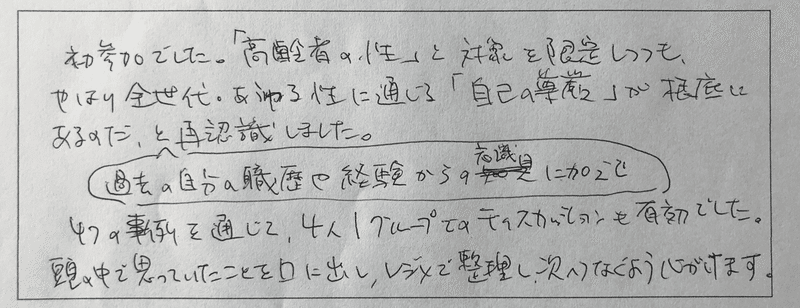 初参加でした。「高齢者の性」と対象を限定しつつも、
やはり全世代。あらゆる性に通じる「自己の尊厳」が根底に
あるのだ、と再認識しました。
過去の自分の職歴や経験からの知識に加えて
4つの事例を通じて、4人1グループでのディスカッションも有効でした。
頭の中で思っていたことを口に出し、レジメで整理し、次へつなぐよう心がけます。